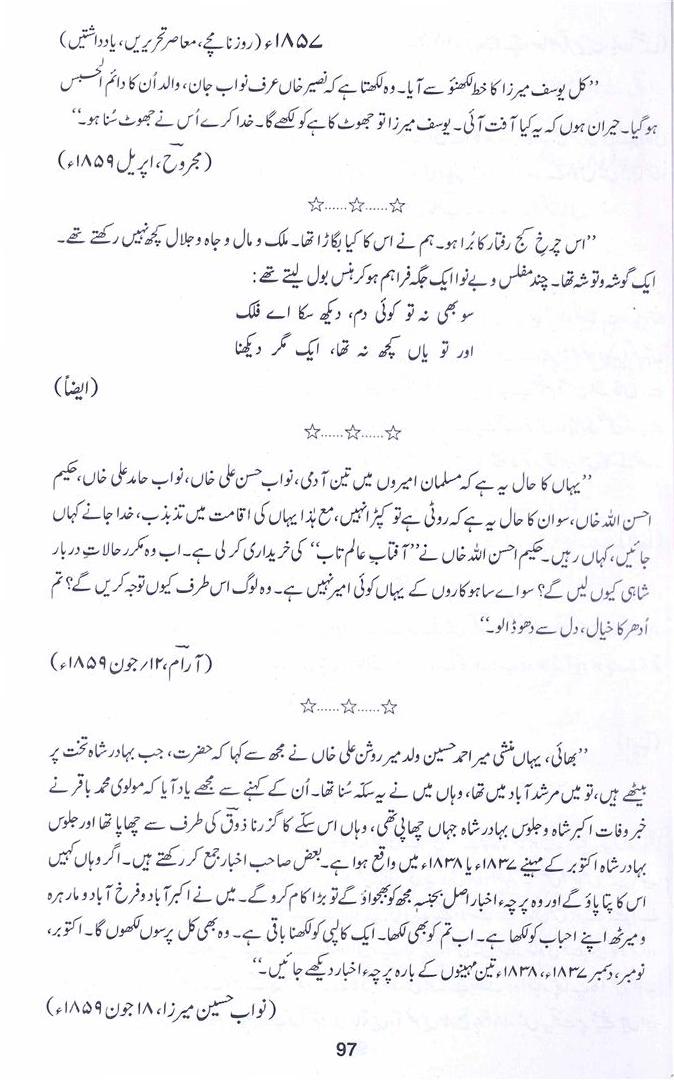 ۱۸۵۷ء (روزنامچے، معاصر تحریریں، یادداشتیں)
’’کل یوسف میرزا کا خط لکھنؤ سے آیا۔ وہ لکھتا ہے کہ نصیر خاں عرف نواب جان، والد اُن کا دائم الحبس
ہوگیا۔ حیران ہوں کہ یہ کیا آفت آئی۔ یوسف میرزا تو جھوٹ کاہے کو لکھے گا۔ خدا کرے اُس نے جھوٹ سُنا ہو۔‘‘
(مجروحؔ، اپریل ۱۸۵۹ء)
☆......☆......☆
’’اس چرخِ کج رفتار کا بُرا ہو۔ ہم نے اس کا کیا بگاڑا تھا۔ ملک و مال و جاہ و جلال کچھ نہیں رکھتے تھے۔
ایک گوشہ و توشہ تھا۔ چند مفلس و بے نوا ایک جگہ فراہم ہو کر ہنس بول لیتے تھے:
سو بھی نہ تو کوئی دم، دیکھ سکا اے فلک
اور تو یاں کچھ نہ تھا، ایک مگر دیکھنا
(ایضاً)
☆......☆......☆
’’یہاں کا حال یہ ہے کہ مسلمان امیروں میں تین آدمی، نواب حسن علی خاں، نواب حامد علی خاں، حکیم
احسن اللہ خاں، سو ان کا حال یہ ہے کہ روٹی ہے تو کپڑا نہیں، مع ہذا یہاں کی اقامت میں تذبذب، خدا جانے کہاں
جائیں، کہاں رہیں۔ حکیم احسن اللہ خاں نے ’’آفتابِ عالم تاب‘‘ کی خریداری کر لی ہے۔ اب وہ مکرر حالاتِ دربار
شاہی کیوں لیں گے؟ سواے ساہوکاروں کے یہاں کوئی امیر نہیں ہے۔ وہ لوگ اس طرف کیوں توجہ کریں گے؟ تم
اُدھر کا خیال، دل سے دھو ڈالو۔‘‘
(آرامؔ، ۱۲؍ جون ۱۸۵۹ء)
☆......☆......☆
’’بھائی، یہاں منشی میر احمد حسین ولد میر روشن علی خاں نے مجھ سے کہا کہ حضرت، جب بہادر شاہ تخت پر
بیٹھے ہیں، تو میں مرشد آباد میں تھا، وہاں میں نے یہ سکہ سُنا تھا۔ اُن کے کہنے سے مجھے یاد آیا کہ مولوی محمد باقر نے
خبر وفات اکبر شاہ و جلوس بہادر شاہ جہاں چھاپی تھی، وہاں اس سکّے کا گزرنا ذوقؔ کی طرف سے چھاپا تھا اور جلوس
بہادر شاہ اکتوبر کے مہینے ۱۸۳۷ء یا ۱۸۳۸ء میں واقع ہوا ہے۔ بعض صاحب اخبار جمع کر رکھتے ہیں۔ اگر وہاں کہیں
اس کا پتا پاؤ گے اور وہ پرچہء اخبار اصل بجنسہٖ مجھ کو بھجواؤ گے تو بڑا کام کرو گے۔ میں نے اکبر آباد و فرخ آباد و مارہرہ
و میرٹھ اپنے احباب کو لکھا ہے۔ اب تم کو بھی لکھا۔ ایک کالپی کو لکھنا باقی ہے۔ وہ بھی کل پرسوں لکھوں گا۔ اکتوبر،
نومبر، دسمبر ۱۸۳۷ء، ۱۸۳۸ء تین مہینوں کے بارہ پرچہء اخبار دیکھے جائیں۔‘‘
(نواب حسین میرزا، ۱۸ جون ۱۸۵۹ء)
97